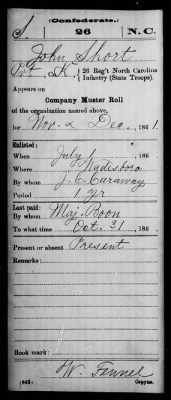 (Confederate.)
S. 26 N.C.
John Short
Pvt., Co. K, 26 Reg't North Carolina Infantry (State Troops).
Appears on
Company Muster Roll
of the organization named above,
for Nov. & Dec., 1861.
Enlisted:
When July 1, 186
Where Wadesboro
By whom J. C. Caraway
Period 1 yr
Last paid:
By whom Maj. Boon
To what time Oct. 31, 186
Present or absent Present
Remarks:
Book mark:
W. Fennel
(642) Copyist.